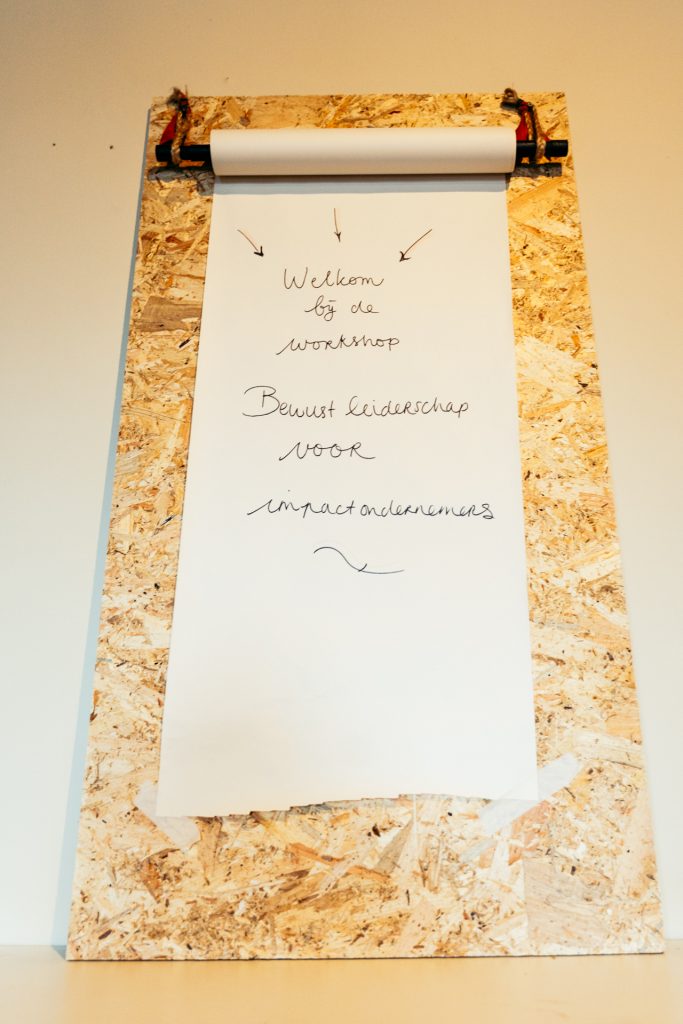 Welkom
bij de
workshop
Bewust leiderschap
voor
impactondernemers